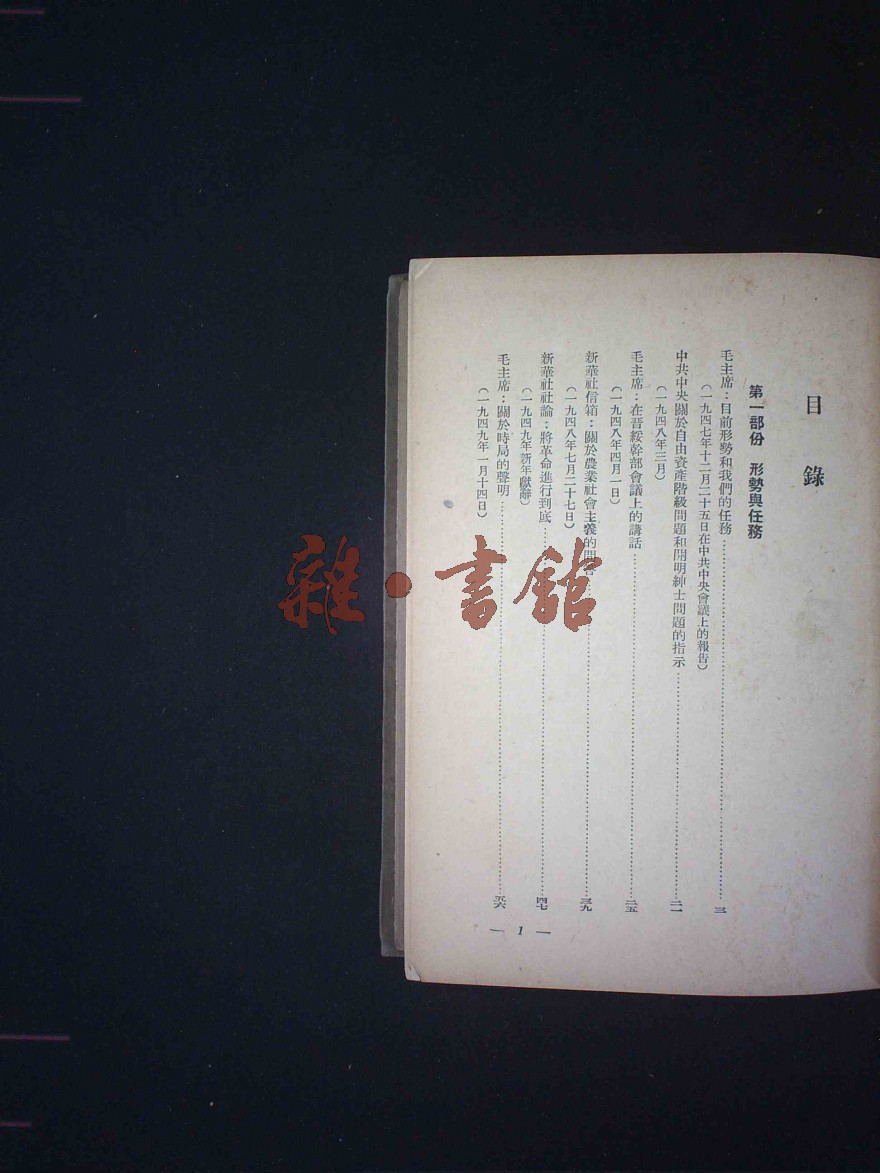 目錄
第一部份 形勢與任務
毛主席：目前形勢和我們的任務……三
（一九四七年十二月二十五日在中共中央會議上的報告）
中共中央關於自由資產階級問題和開明紳士問題的指示……二一
（一九四八年三月）
毛主席：在晋綏幹部會議上的講話……二五
（一九四八年四月一日）
新華社信箱：關於農業社會主義的問答……三九
（一九四八年七月二十七日）
新華社社論：將革命進行到底……四七
（一九四九年新年獻辭）
毛主席：關於時局的聲明……五六
（一九四九年一月十四日）
— 1 —
雜·書館